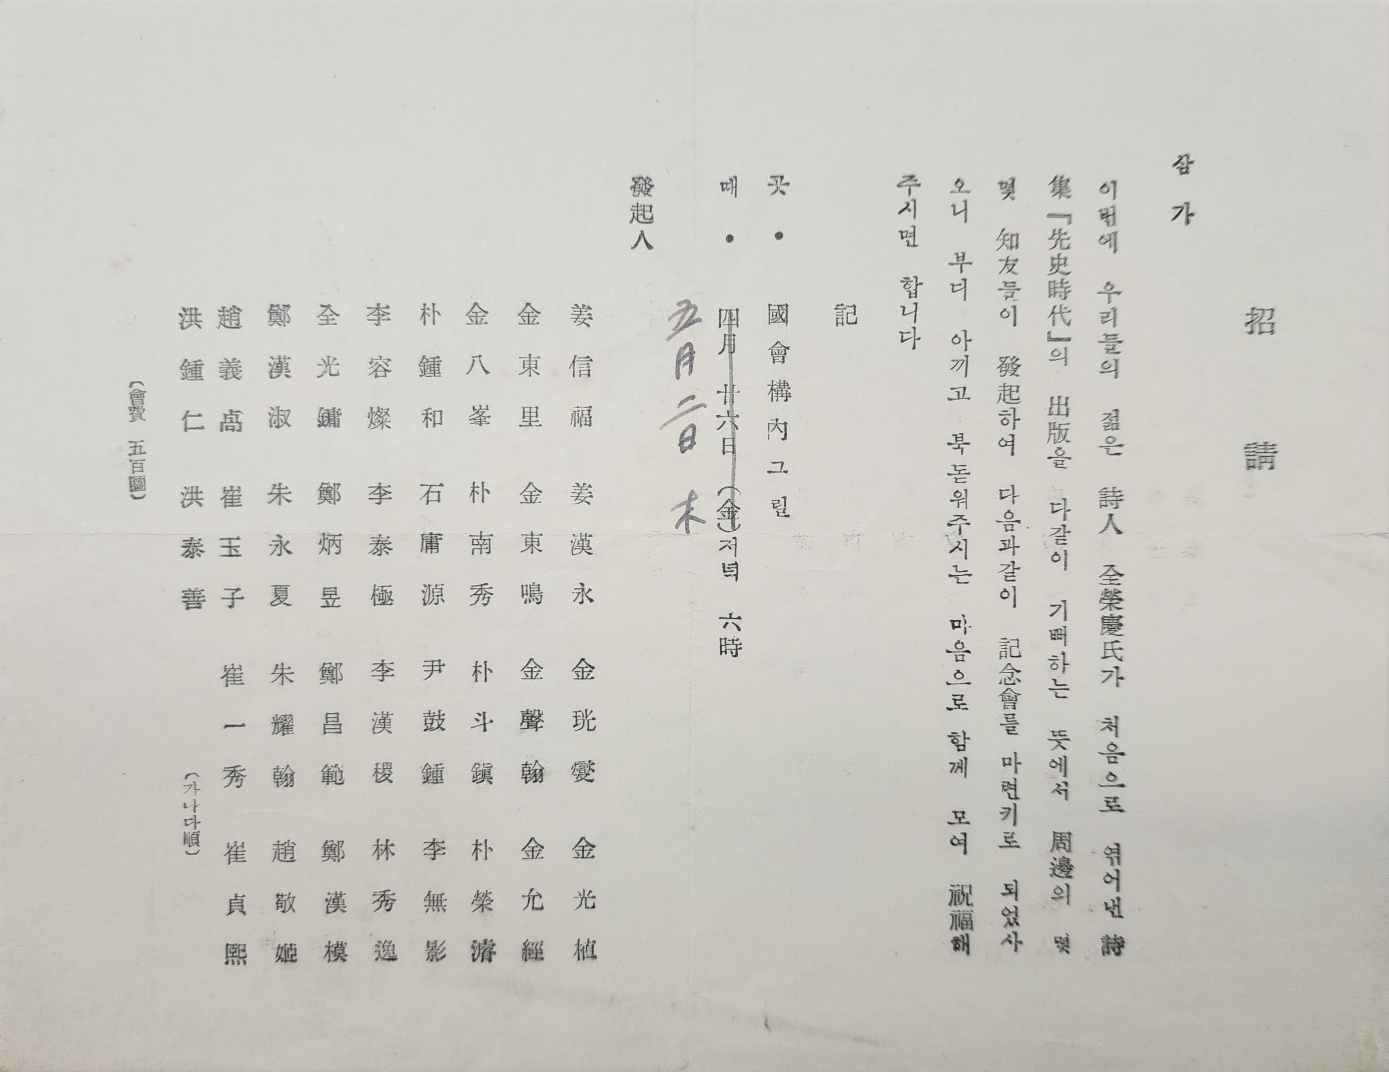 招請
삼가
이번에 우리들의 젊은 詩人 全榮慶氏가 처음으로 엮어낸 詩
集『先史時代』의 出版을 다같이 기뻐하는 뜻에서 周邊의 몇
몇 知友들이 發起하여 다음과같이 記念會를 마련키로 되었사
오니 부디 아끼고 북돋워주시는 마음으로 함께 모여 祝福해
주시면 합니다
記
곳 • 國會構內그릴
때 • 四月 廿六日 (金)저녁 六時
五月 二日 木
發起人
姜信福 姜漢永 金珖燮 金光植
金東里 金東鳴 金聲翰 金允經
金八峯 朴南秀 朴斗鎭 朴榮濬
朴鍾和 石庸源 尹鼓鍾 李無影
李容燦 李泰極 李漢稷 林秀逸
全光鏞 鄭炳昱 鄭昌範 鄭漢模
鄭漢淑 朱永夏 朱耀翰 趙敬姬
趙義卨 崔玉子 崔一秀 崔貞熙
洪鍾仁 洪泰善 (가나다順)
(會費 五百圜)